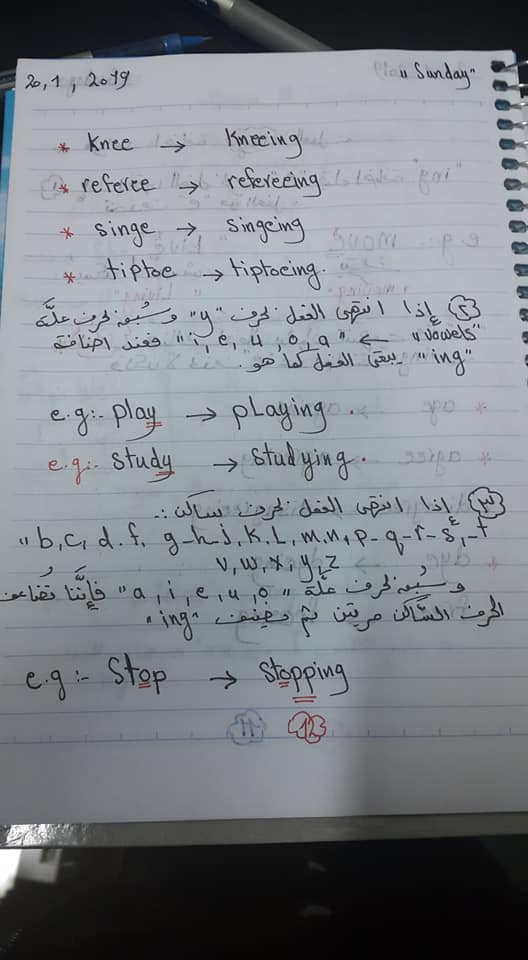 20, 1, 2019 "Sunday"
* knee → kneeing
* referee → refereeing
* singe → singeing
* tiptoe → tiptoeing.
(٢) إذا انتهى الفعل بحرف "y" وسُبِقَ بحرف علّة
"vowels" ← "i, e, u, o, a" فعند اضافة
"ing" يبقى الفعل كما هو.
e.g:- play → pLaying.
e.g:- study → studying.
(٣) إذا انتهى الفعل بحرف ساكن :.
"b, c, d. f, g-h-j, k, L, m, n, p-q-r-s, t
v, w, x, y, z
وسُبِقَ بحرف علّة "a, i, e, u, o" فإنَّنا نُضاعف
الحرف السَّاكن مرتين ثم نضيف "ing"
e.g:- stop → stopping
12